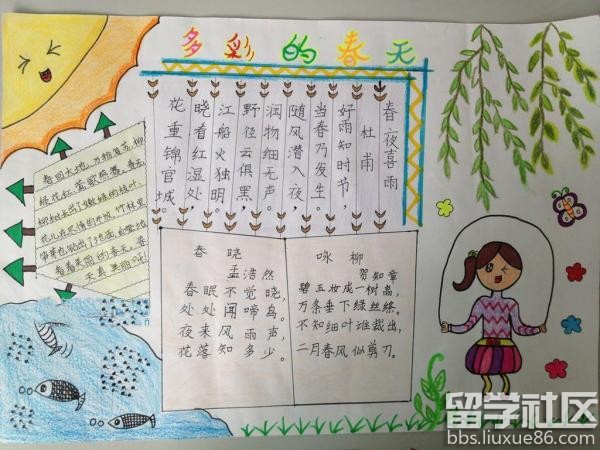 多彩的春天
春夜喜雨
杜甫
好雨知时节，
当春乃发生。
随风潜入夜
润物细无声。
野径云俱黑，
江船火独明。
晓看红湿处
花重锦官城。
春回大地，万物复苏，柳
绿花红，莺歌燕舞。春天，
柳树长出了嫩绿的枝叶，
花儿在尽情的开放，竹林里
春晓
孟浩然
春眠不觉晓，
处处闻啼鸟。
夜来风雨声，
花落知多少。
咏柳
贺知章
碧玉妆成一树高，
万条垂下绿丝绦。
不知细叶谁裁出，
二月春风似剪刀。
留学社区
bbs.liuxue86.com